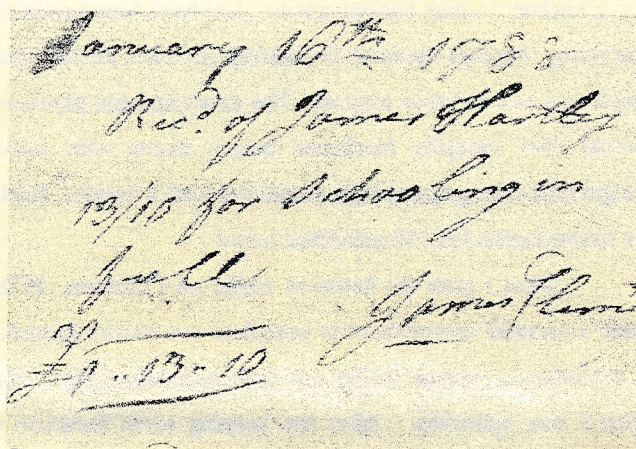 January 16th 1788
Recd. of James Hartley
13/10 for Schooling in
full
James
£1..13..10